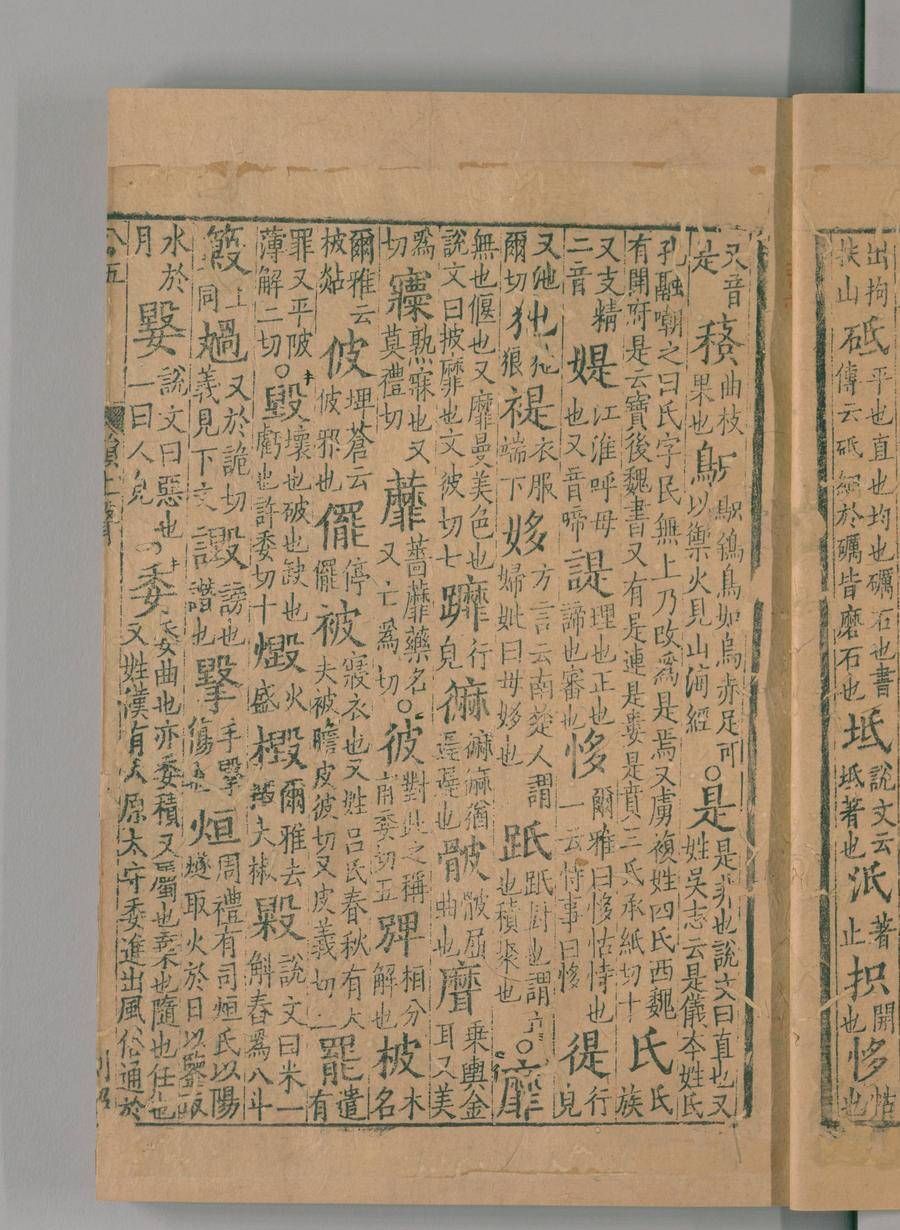 出拘扶山砥平也直也均也礪石也書傳云砥細於礪皆磨石也坻說文云坻著也泜著止抧開也恀怙也
又音是䅩曲枝果也䳅鳥如烏赤足可以禦火見山海經○是是非也說文曰直也又姓吳志云是儀夲姓氏
孔融嘲之曰氏字民無上乃改爲是焉又虜複姓四氏西魏有開府是云寶後魏書又有是連是婁是賁三氏承紙切十氏氏族
又支精二音媞江淮呼母也又音啼諟理也正也諦也審也恀爾雅曰恀怙恃也一云恃事曰恀徥行皃
又弛爾切狏狼褆衣服端下姼方言云南楚人謂婦妣曰母姼也也謂也積聚也○靡
無也偃也又靡曼美色也說文曰披靡也文彼切七行皃骳骳屈曲也乘輿金耳又美
爲切熟寐也又莫禮切蘼蘠蘼藥名又亡爲切○彼對此之稱甫委切五相分解也柀木名
爾雅云柀煔佊埤蒼云佊邪也停被寢衣也又姓呂氏春秋有大夫被瞻皮彼切又皮義切二罷遣有
罪又平陂薄解二切○毀壞也破也缺也虧也許委切十燬火盛檓爾雅云檓大椒毇說文曰米一斛舂爲八斗
上同又於詭切義見下文譭謗也譖也手傷也烜周禮有司烜氏以陽燧取火於日以鑒取
水於月嫛說文曰惡也一曰人皃○委委曲也亦委積又屬也棄也隨也任也又姓漢有太原太守委進出風俗通於